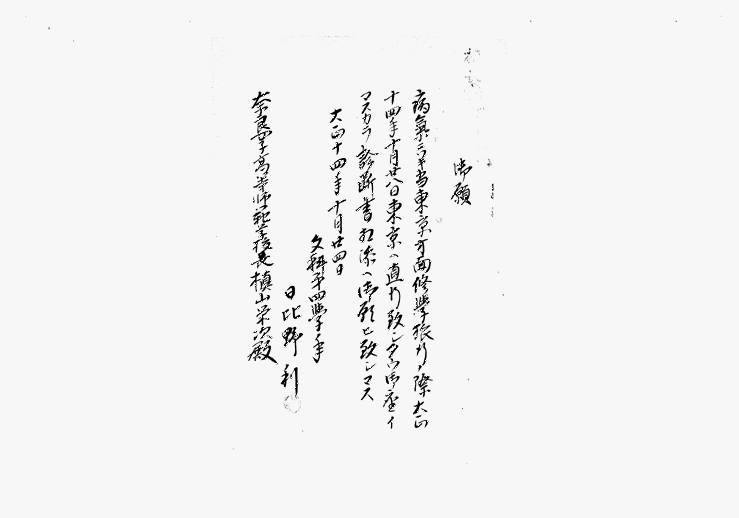 御願
病氣ニツキ当東京方面修學旅行ノ際大正
十四年十月廿八日東京ヘ直行致シタク御座イ
マスカラ診断書相添ヘ御願ヒ致シマス
大正十四年十月廿四日
文科第四學年
日比野 利
奈良女子高等師範学校長槙山栄次殿